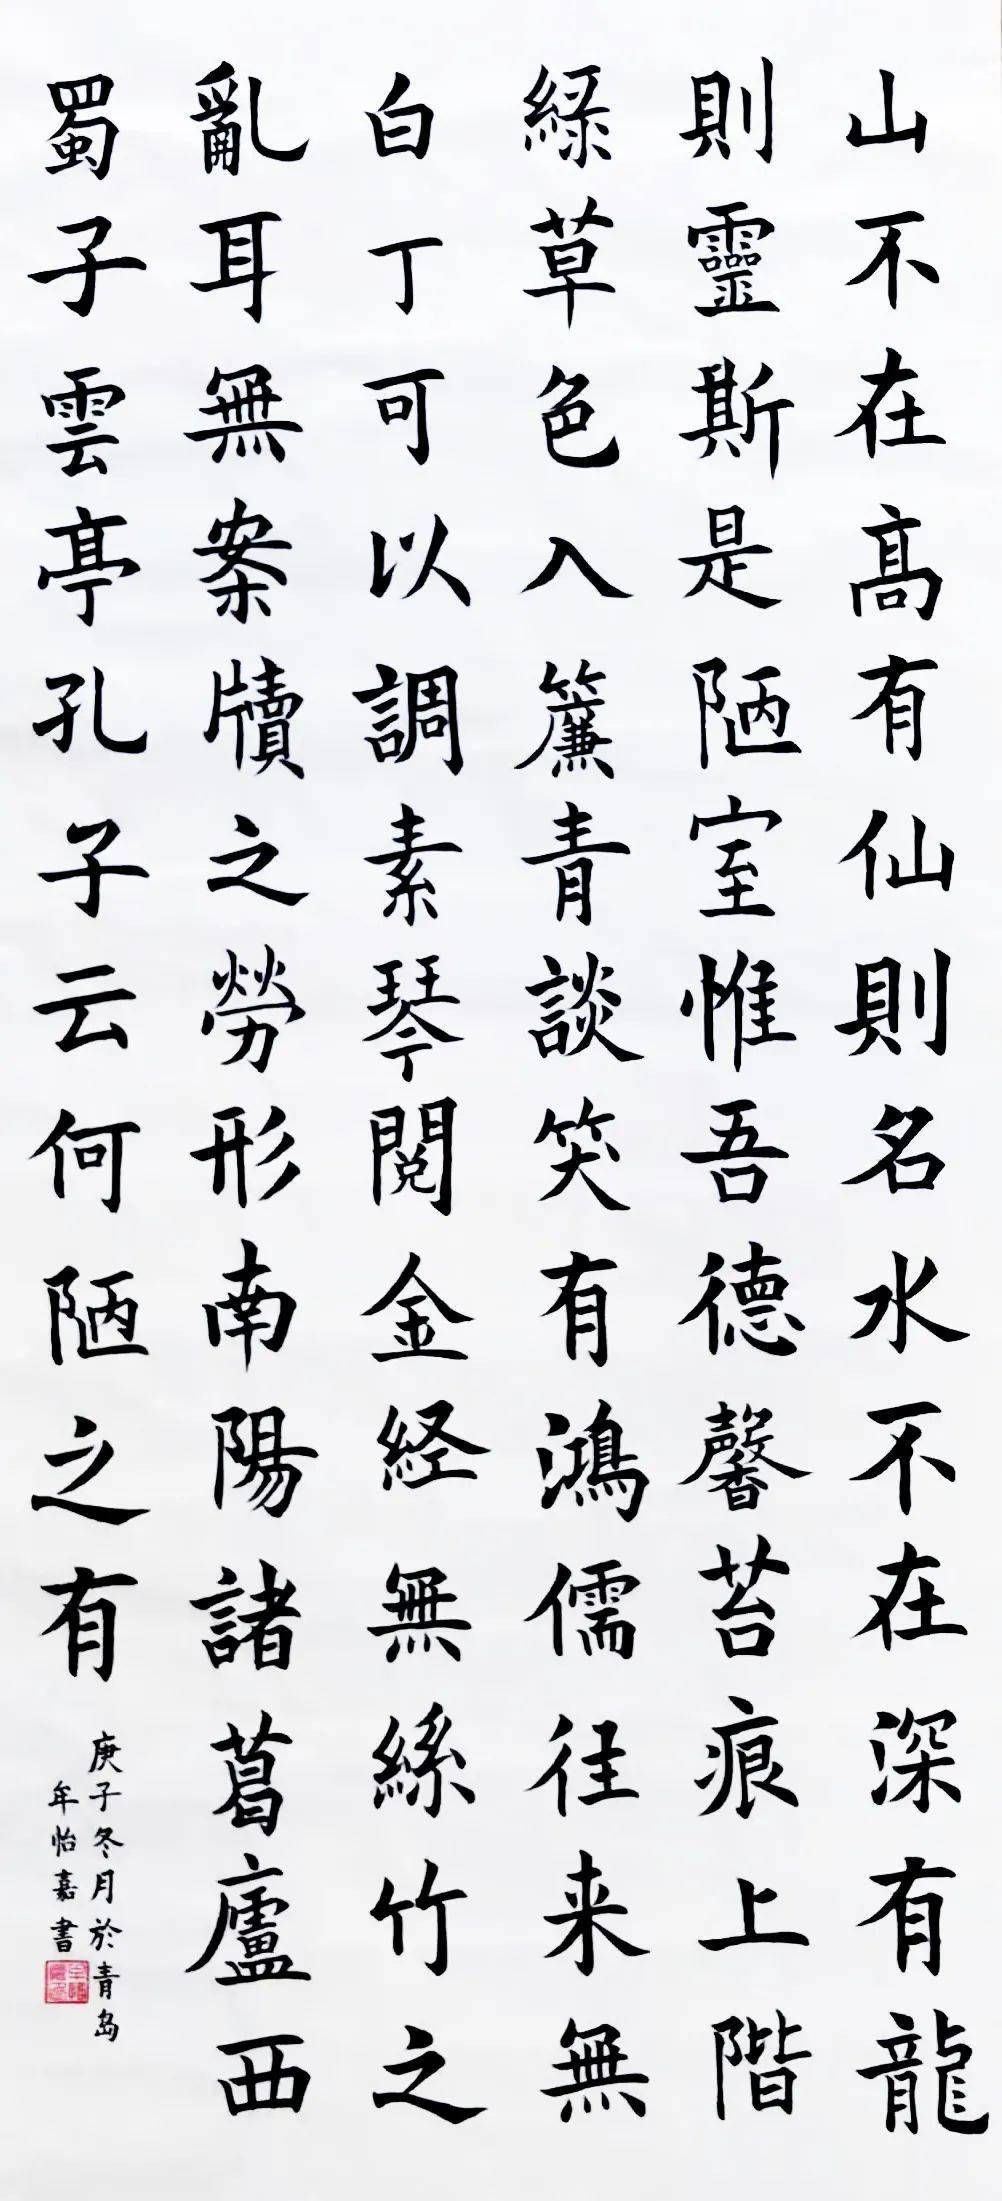 山不在高有仙則名水不在深有龍
則靈斯是陋室惟吾德馨苔痕上階
綠草色入簾青談笑有鴻儒往来無
白丁可以調素琴閱金経無絲竹之
亂耳無案牘之勞形南陽諸葛廬西
蜀子雲亭孔子云何陋之有
庚子冬月於青岛
牟怡嘉書